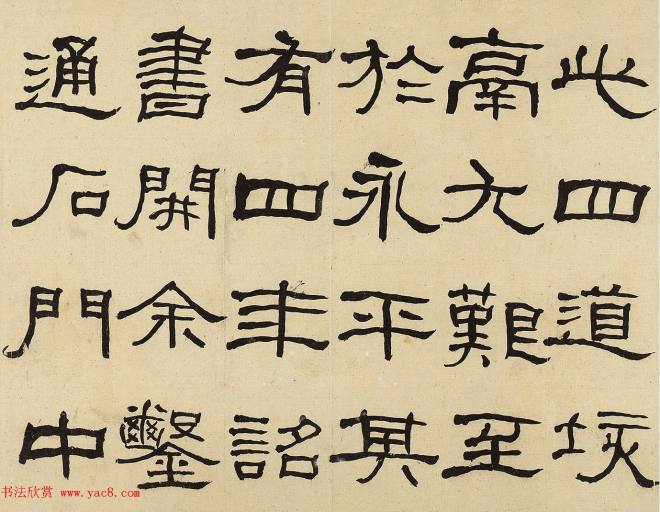 此四道垓
鬲尤艱至
於永平其
有四年詔
書開余鑿
通石門中
书法欣赏 www.yac8.com